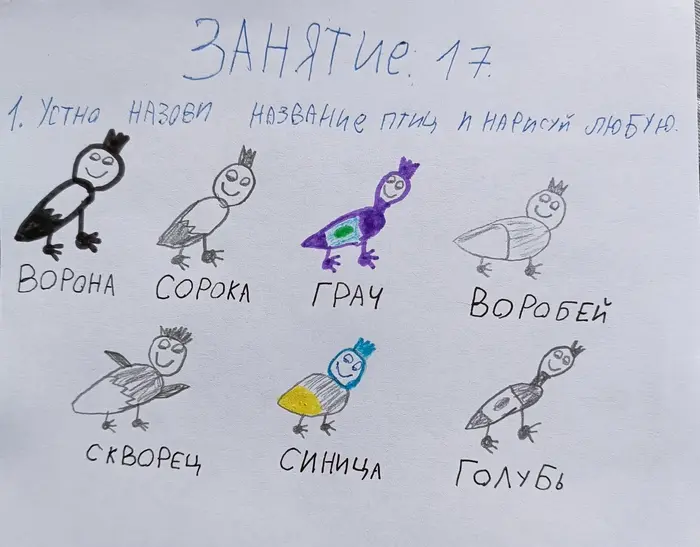 ЗАНЯТИЕ. 17.
1. УСТНО НАЗОВИ НАЗВАНИЕ ПТИЦ И НАРИСУЙ ЛЮБУЮ.
ВОРОНА СОРОКА ГРАЧ ВОРОБЕЙ
СКВОРЕЦ СИНИЦА ГОЛУБЬ